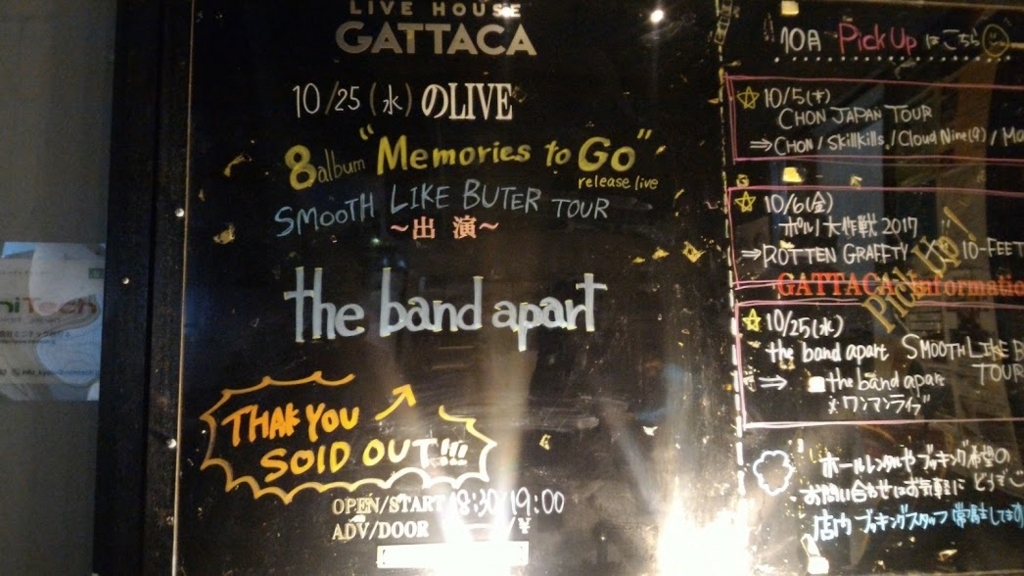 LIVE HOUSE
GATTACA
10/25(水)のLIVE
8album "Memories to Go"
release live
SMOOTH LIKE BUTER TOUR
~出演~
the band apart
THAK YOU
SOLD OUT!!!
OPEN/START 18:30/19:00
ADV/DOOR /¥
10月 Pick Up はこちら
10/5(木)
CHON JAPAN TOUR
⇒CHON/Skillkills/Cloud Nine(9)/
10/6(金)
ポルノ大作戦2017
⇒ROTTEN GRAFFTY VS 10-FEET
GATTACA Informatio
Pick Up!
10/25(水)
the band apart SMOOTH LIKE B
TOUR
⇒ the band apart
※ワンマンライブ
ホールレンタルやブッキング希望の
お問い合わせはお気軽に
店内ブッキングスタッフ常駐してます
niTech